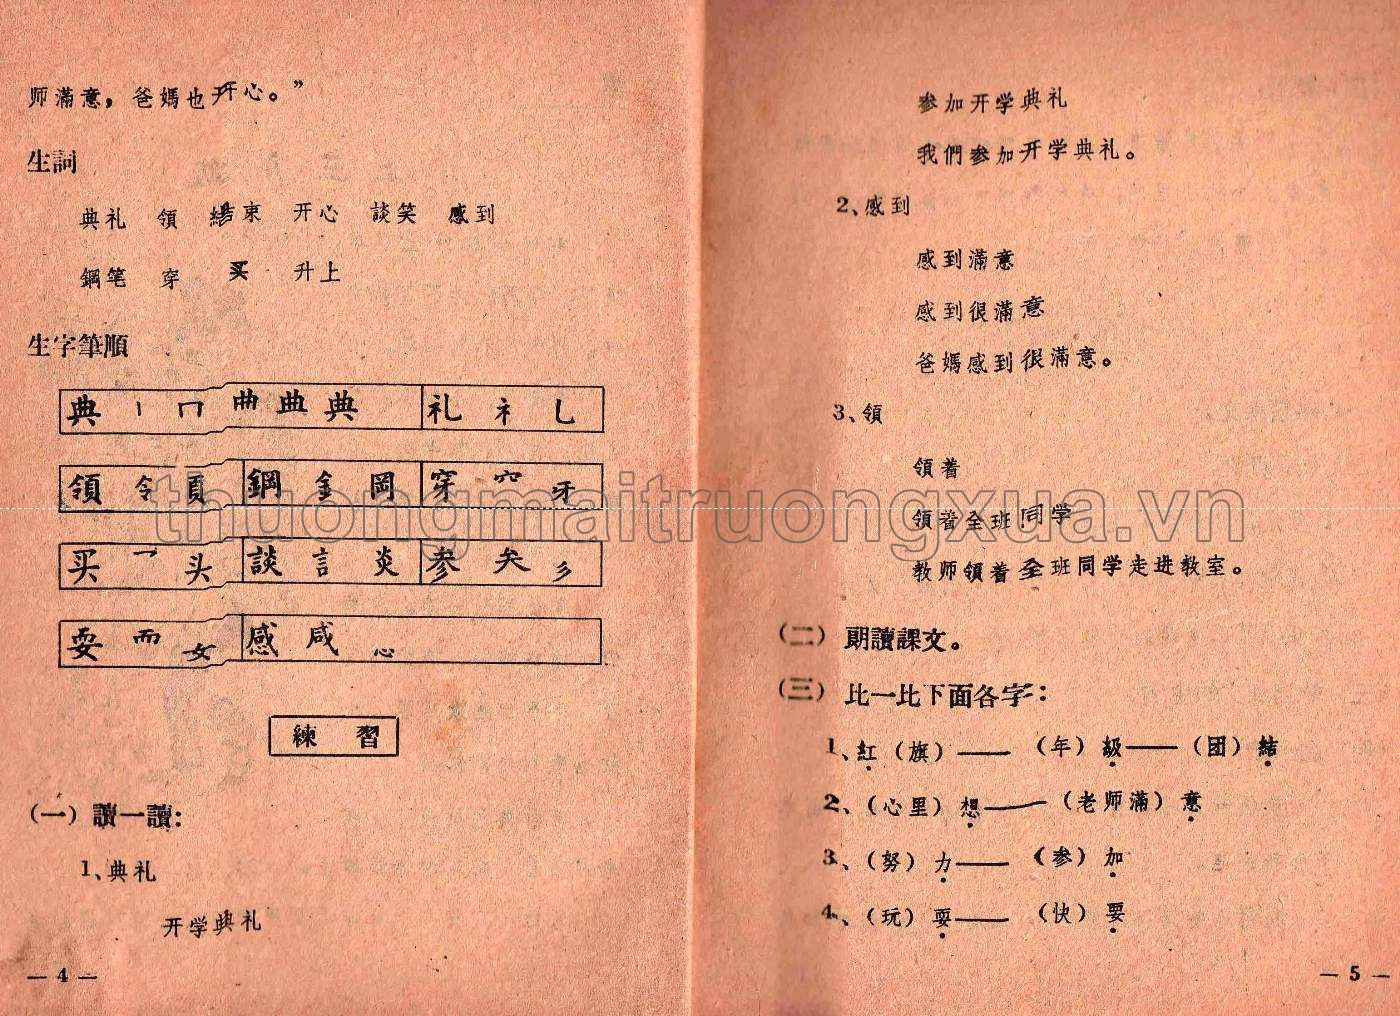 师滿意，爸媽也开心。”
生詞
典礼 領 結束 开心 談笑 感到
鋼笔 穿 买 升上
生字筆順
典 丨 冂 曲 典 礼 礻 乚
領 令 頁 鋼 金 岡 穿 穴 牙
买 乛 头 談 言 炎 参 矣 彡
耍 而 女 感 咸 心
練習
(一) 讀一讀：
1、典礼
开学典礼
— 4 —
参加开学典礼
我們参加开学典礼。
2、感到
感到滿意
感到很滿意
爸媽感到很滿意。
3、領
領着
領着全班同学
教师領着全班同学走进教室。
(二) 朗讀課文。
(三) 比一比下面各字：
1、紅（旗）——（年）級——（团）結
2、（心里）想——（老师滿）意
3、（努）力——（参）加
4、（玩）耍——（快）要
— 5 —
thuongmaitruongxua.vn